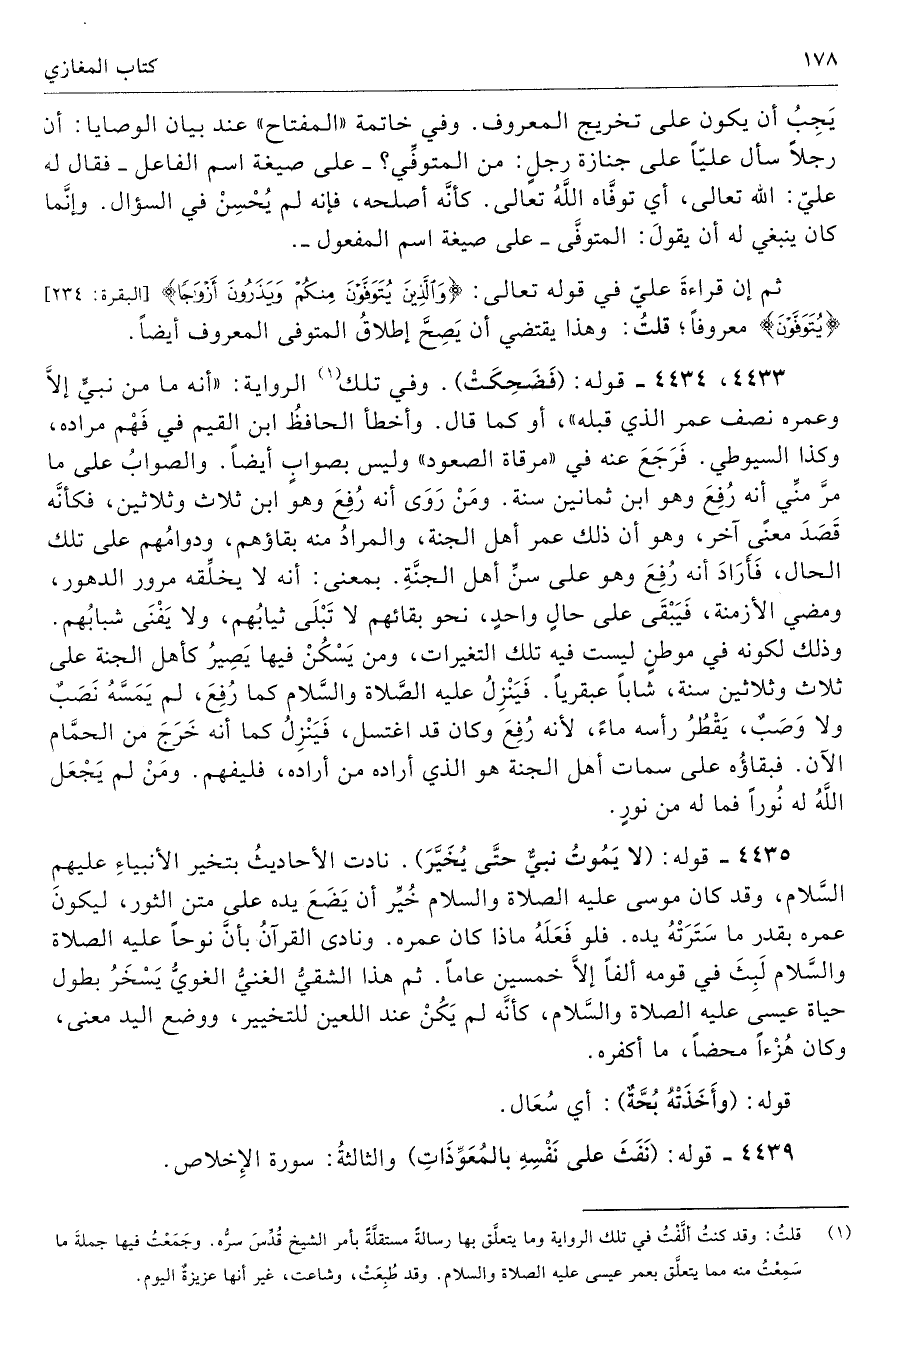 ١٧٨
كتاب المغازي
يَجِبُ أن يكون على تخريج المعروف. وفي خاتمة «المفتاح» عند بيان الوصايا: أن
رجلاً سأل عليّاً على جنازة رجلٍ: من المتوفِّي؟ ـ على صيغة اسم الفاعل ـ فقال له
عليّ: الله تعالى، أي توفَّاه اللَّهُ تعالى. كأنَّه أصلحه، فإنه لم يُحْسِنْ في السؤال. وإنَّما
كان ينبغي له أن يقولَ: المتوفَّى ـ على صيغة اسم المفعول ـ.
ثم إن قراءةَ عليّ في قوله تعالى: ﴿وَالَّذِينَ يُتَوَفَّوْنَ مِنكُمْ وَيَذَرُونَ أَزْوَاجًا﴾ [البقرة: ٢٣٤]
﴿يُتَوَفَّوْنَ﴾ معروفاً؛ قلتُ: وهذا يقتضي أن يَصِحَّ إطلاقُ المتوفى المعروف أيضاً.
٤٤٣٣، ٤٤٣٤ ـ قوله: (فَضَحِكَتْ). وفي تلك(١) الرواية: «أنه ما من نبيٍّ إلاَّ
وعمره نصف عمر الذي قبله»، أو كما قال. وأخطأ الحافظُ ابن القيم في فَهْم مراده،
وكذا السيوطي. فَرَجَعَ عنه في «مرقاة الصعود» وليس بصوابٍ أيضاً. والصوابُ على ما
مرَّ منِّي أنه رُفِعَ وهو ابن ثمانين سنة. ومَنْ رَوَى أنه رُفِعَ وهو ابن ثلاث وثلاثين، فكأنَّه
قَصَدَ معنًى آخر، وهو أن ذلك عمر أهل الجنة، والمرادُ منه بقاؤهم، ودوامُهم على تلك
الحال، فَأَرَادَ أنه رُفِعَ وهو على سنِّ أهل الجنَّةِ. بمعنى: أنه لا يخلِّقه مرور الدهور،
ومضي الأزمنة، فَيَبْقَى على حالٍ واحدٍ، نحو بقائهم لا تَبْلَى ثيابُهم، ولا يَفْنَى شبابُهم.
وذلك لكونه في موطنٍ ليست فيه تلك التغيرات، ومن يَسْكُنْ فيها يَصِيرُ كأهل الجنة على
ثلاث وثلاثين سنة، شاباً عبقرياً. فَيَنْزِلُ عليه الصَّلاة والسَّلام كما رُفِعَ، لم يَمَسَّهُ نَصَبٌ
ولا وَصَبٌ، يَقْطُرُ رأسه ماءً، لأنه رُفِعَ وكان قد اغتسل، فَيَنْزِلُ كما أنه خَرَجَ من الحمَّام
الآن. فبقاؤُه على سمات أهل الجنة هو الذي أراده من أراده، فليفهم. ومَنْ لم يَجْعَل
اللَّهُ له نُوراً فما له من نورٍ.
٤٤٣٥ ـ قوله: (لا يَمُوتُ نبيٌّ حتَّى يُخَيَّرَ). نادت الأحاديثُ بتخير الأنبياءِ عليهم
السَّلام، وقد كان موسى عليه الصلاة والسلام خُيِّر أن يَضَعَ يده على متن الثور، ليكونَ
عمره بقدر ما سَتَرَتْهُ يده. فلو فَعَلَهُ ماذا كان عمره. ونادى القرآنُ بأنَّ نوحاً عليه الصلاة
والسَّلام لَبِثَ في قومه ألفاً إلاَّ خمسين عاماً. ثم هذا الشقيُّ الغنيُّ الغويُّ يَسْخَرُ بطول
حياة عيسى عليه الصلاة والسَّلام، كأنَّه لم يَكُنْ عند اللعين للتخيير، ووضع اليد معنى،
وكان هُزْءاً محضاً، ما أكفره.
قوله: (وأَخَذَتْهُ بُحَّةٌ): أي سُعَال.
٤٤٣٩ ـ قوله: (نَفَثَ على نَفْسِهِ بالمُعَوِّذَاتِ) والثالثةُ: سورة الإِخلاص.
(١) قلتُ: وقد كنتُ ألَّفْتُ في تلك الرواية وما يتعلَّق بها رسالةً مستقلَّةً بأمر الشيخ قُدِّسَ سرُّه. وجَمَعْتُ فيها جملةَ ما
سَمِعْتُ منه مما يتعلَّق بعمر عيسى عليه الصلاة والسلام. وقد طُبِعَتْ، وشاعت، غير أنها عزيزةٌ اليوم.